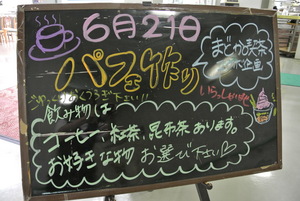 6月21日
パフェ作り
まどか喫茶
企画
いらっしゃいませ
ごゆっくりおくつろぎ下さい!!
飲み物は
コーヒー、紅茶、昆布茶あります。
お好きな物お選び下さい♡